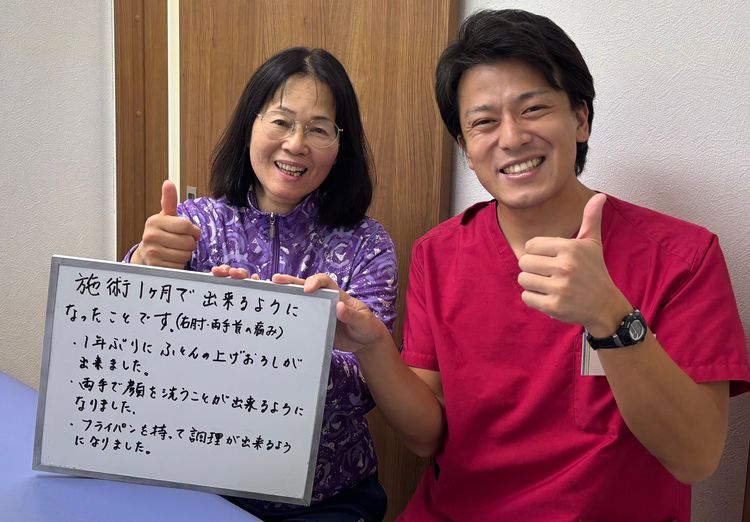 施術1ヶ月で出来るように
なったことです。(右肘・両手首の痛み)
・1年ぶりにふとんの上げおろしが
出来ました。
・両手で顔を洗うことが出来るように
なりました。
・フライパンを持って調理が出来るよう
になりました。